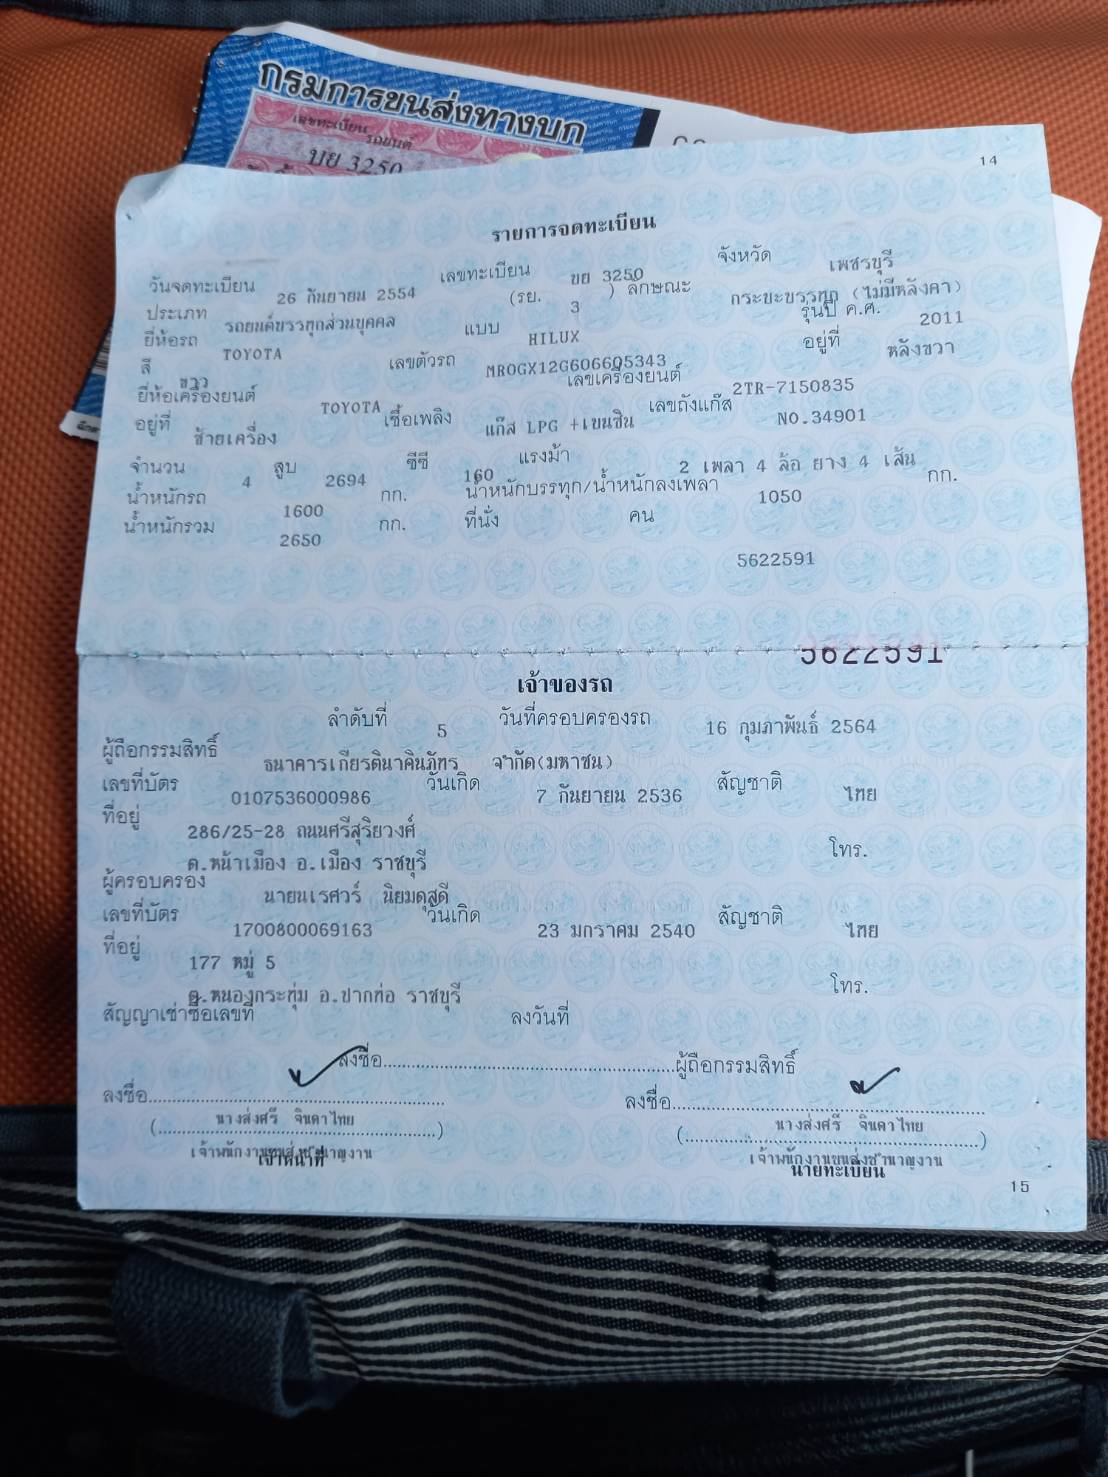 กรมการขนส่งทางบก
เลขทะเบียน รถยนต์
บย 3250
14
รายการจดทะเบียน
วันจดทะเบียน 26 กันยายน 2554 เลขทะเบียน บย 3250 จังหวัด เพชรบุรี
ประเภท รถยนต์บรรทุกส่วนบุคคล (รย. 3 ) ลักษณะ กระบะบรรทุก (ไม่มีหลังคา)
ยี่ห้อรถ TOYOTA แบบ HILUX รุ่นปี ค.ศ. 2011
สี ขาว เลขตัวรถ MR0GX12G606605343 อยู่ที่ หลังขวา
ยี่ห้อเครื่องยนต์ TOYOTA เลขเครื่องยนต์ 2TR-7150835
อยู่ที่ ซ้ายเครื่อง เชื้อเพลิง แก๊ส LPG +เบนซิน เลขถังแก๊ส NO.34901
จำนวน 4 สูบ 2694 ซีซี 160 แรงม้า 2 เพลา 4 ล้อ ยาง 4 เส้น
น้ำหนักรถ 1600 กก. น้ำหนักบรรทุก/น้ำหนักลงเพลา 1050 กก.
น้ำหนักรวม 2650 กก. ที่นั่ง คน
5622591
5622591
เจ้าของรถ
ลำดับที่ 5 วันที่ครอบครองรถ 16 กุมภาพันธ์ 2564
ผู้ถือกรรมสิทธิ์ ธนาคารเกียรตินาคินภัทร จำกัด(มหาชน)
เลขที่บัตร 0107536000986 วันเกิด 7 กันยายน 2536 สัญชาติ ไทย
ที่อยู่ 286/25-28 ถนนศรีสุริยวงศ์
ต.หน้าเมือง อ.เมือง ราชบุรี โทร.
ผู้ครอบครอง นายนเรศวร์ นิยมดุสดี
เลขที่บัตร 1700800069163 วันเกิด 23 มกราคม 2540 สัญชาติ ไทย
ที่อยู่ 177 หมู่ 5
ต.หนองกระทุ่ม อ.ปากท่อ ราชบุรี โทร.
สัญญาเช่าซื้อเลขที่ ลงวันที่
ลงชื่อ ผู้ถือกรรมสิทธิ์
ลงชื่อ ลงชื่อ
(นางส่งศรี จินดาไทย) (นางส่งศรี จินดาไทย)
เจ้าพนักงานขนส่งชำนาญงาน เจ้าพนักงานขนส่งชำนาญงาน
เจ้าหน้าที่ นายทะเบียน
15